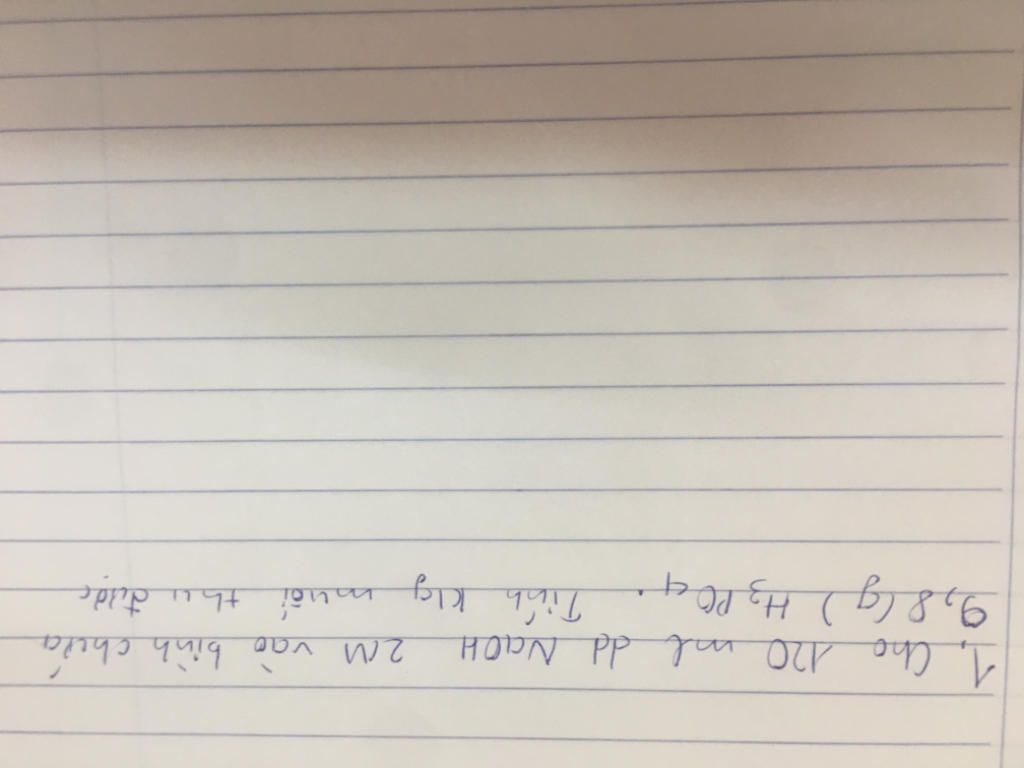 1, Cho 120 ml dd NaOH 2M vào bình chứa
9,8 (g) H3PO4. Tính klg muối thu được